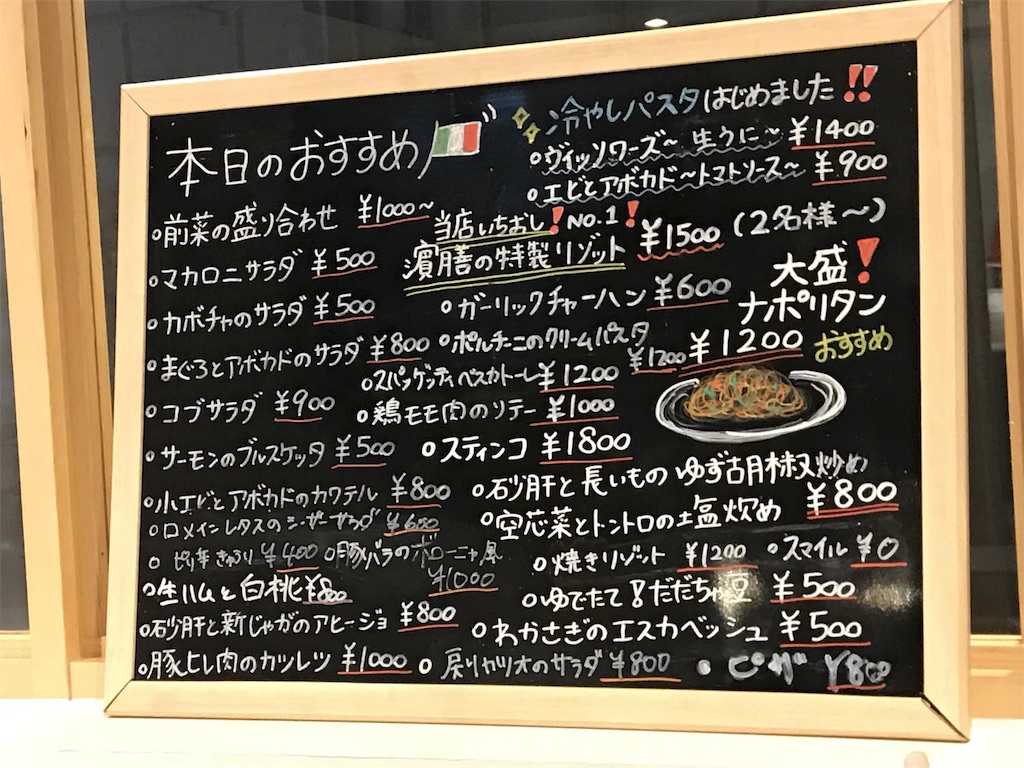 本日のおすすめ
冷やしパスタはじめました!!
ヴィッソワーズ～ 生うに～ ¥1400
エビとアボカド～トマトソース～ ¥900
前菜の盛り合わせ ¥1000～
マカロニサラダ ¥500
カボチャのサラダ ¥500
まぐろとアボカドのサラダ ¥800
コブサラダ ¥900
サーモンのブルスケッタ ¥500
小エビとアボカドのカクテル ¥800
ロメインレタスのシーザーサラダ ¥600
ピリ辛きゅうり ¥400
豚バラのボローニャ風
¥1000
生ハムと白桃 ¥800
砂肝と新じゃがのアヒージョ ¥800
豚ヒレ肉のカツレツ ¥1000
当店いちおし!No.1!
濱膳の特製リゾット ¥1500 (2名様～)
ガーリックチャーハン ¥600
ポルチーニのクリームパスタ
¥1200
スパッゲッティペスカトーレ ¥1200
鶏モモ肉のソテー ¥1000
スティンコ ¥1800
大盛!
ナポリタン
¥1200 おすすめ
砂肝と長いもの ゆず胡椒炒め
¥800
空芯菜とトントロの塩炒め
焼きリゾット ¥1200
スマイル ¥0
ゆでたて!だだちゃ豆 ¥500
わかさぎのエスカベッシュ ¥500
戻りカツオのサラダ ¥800
ピザ ¥800